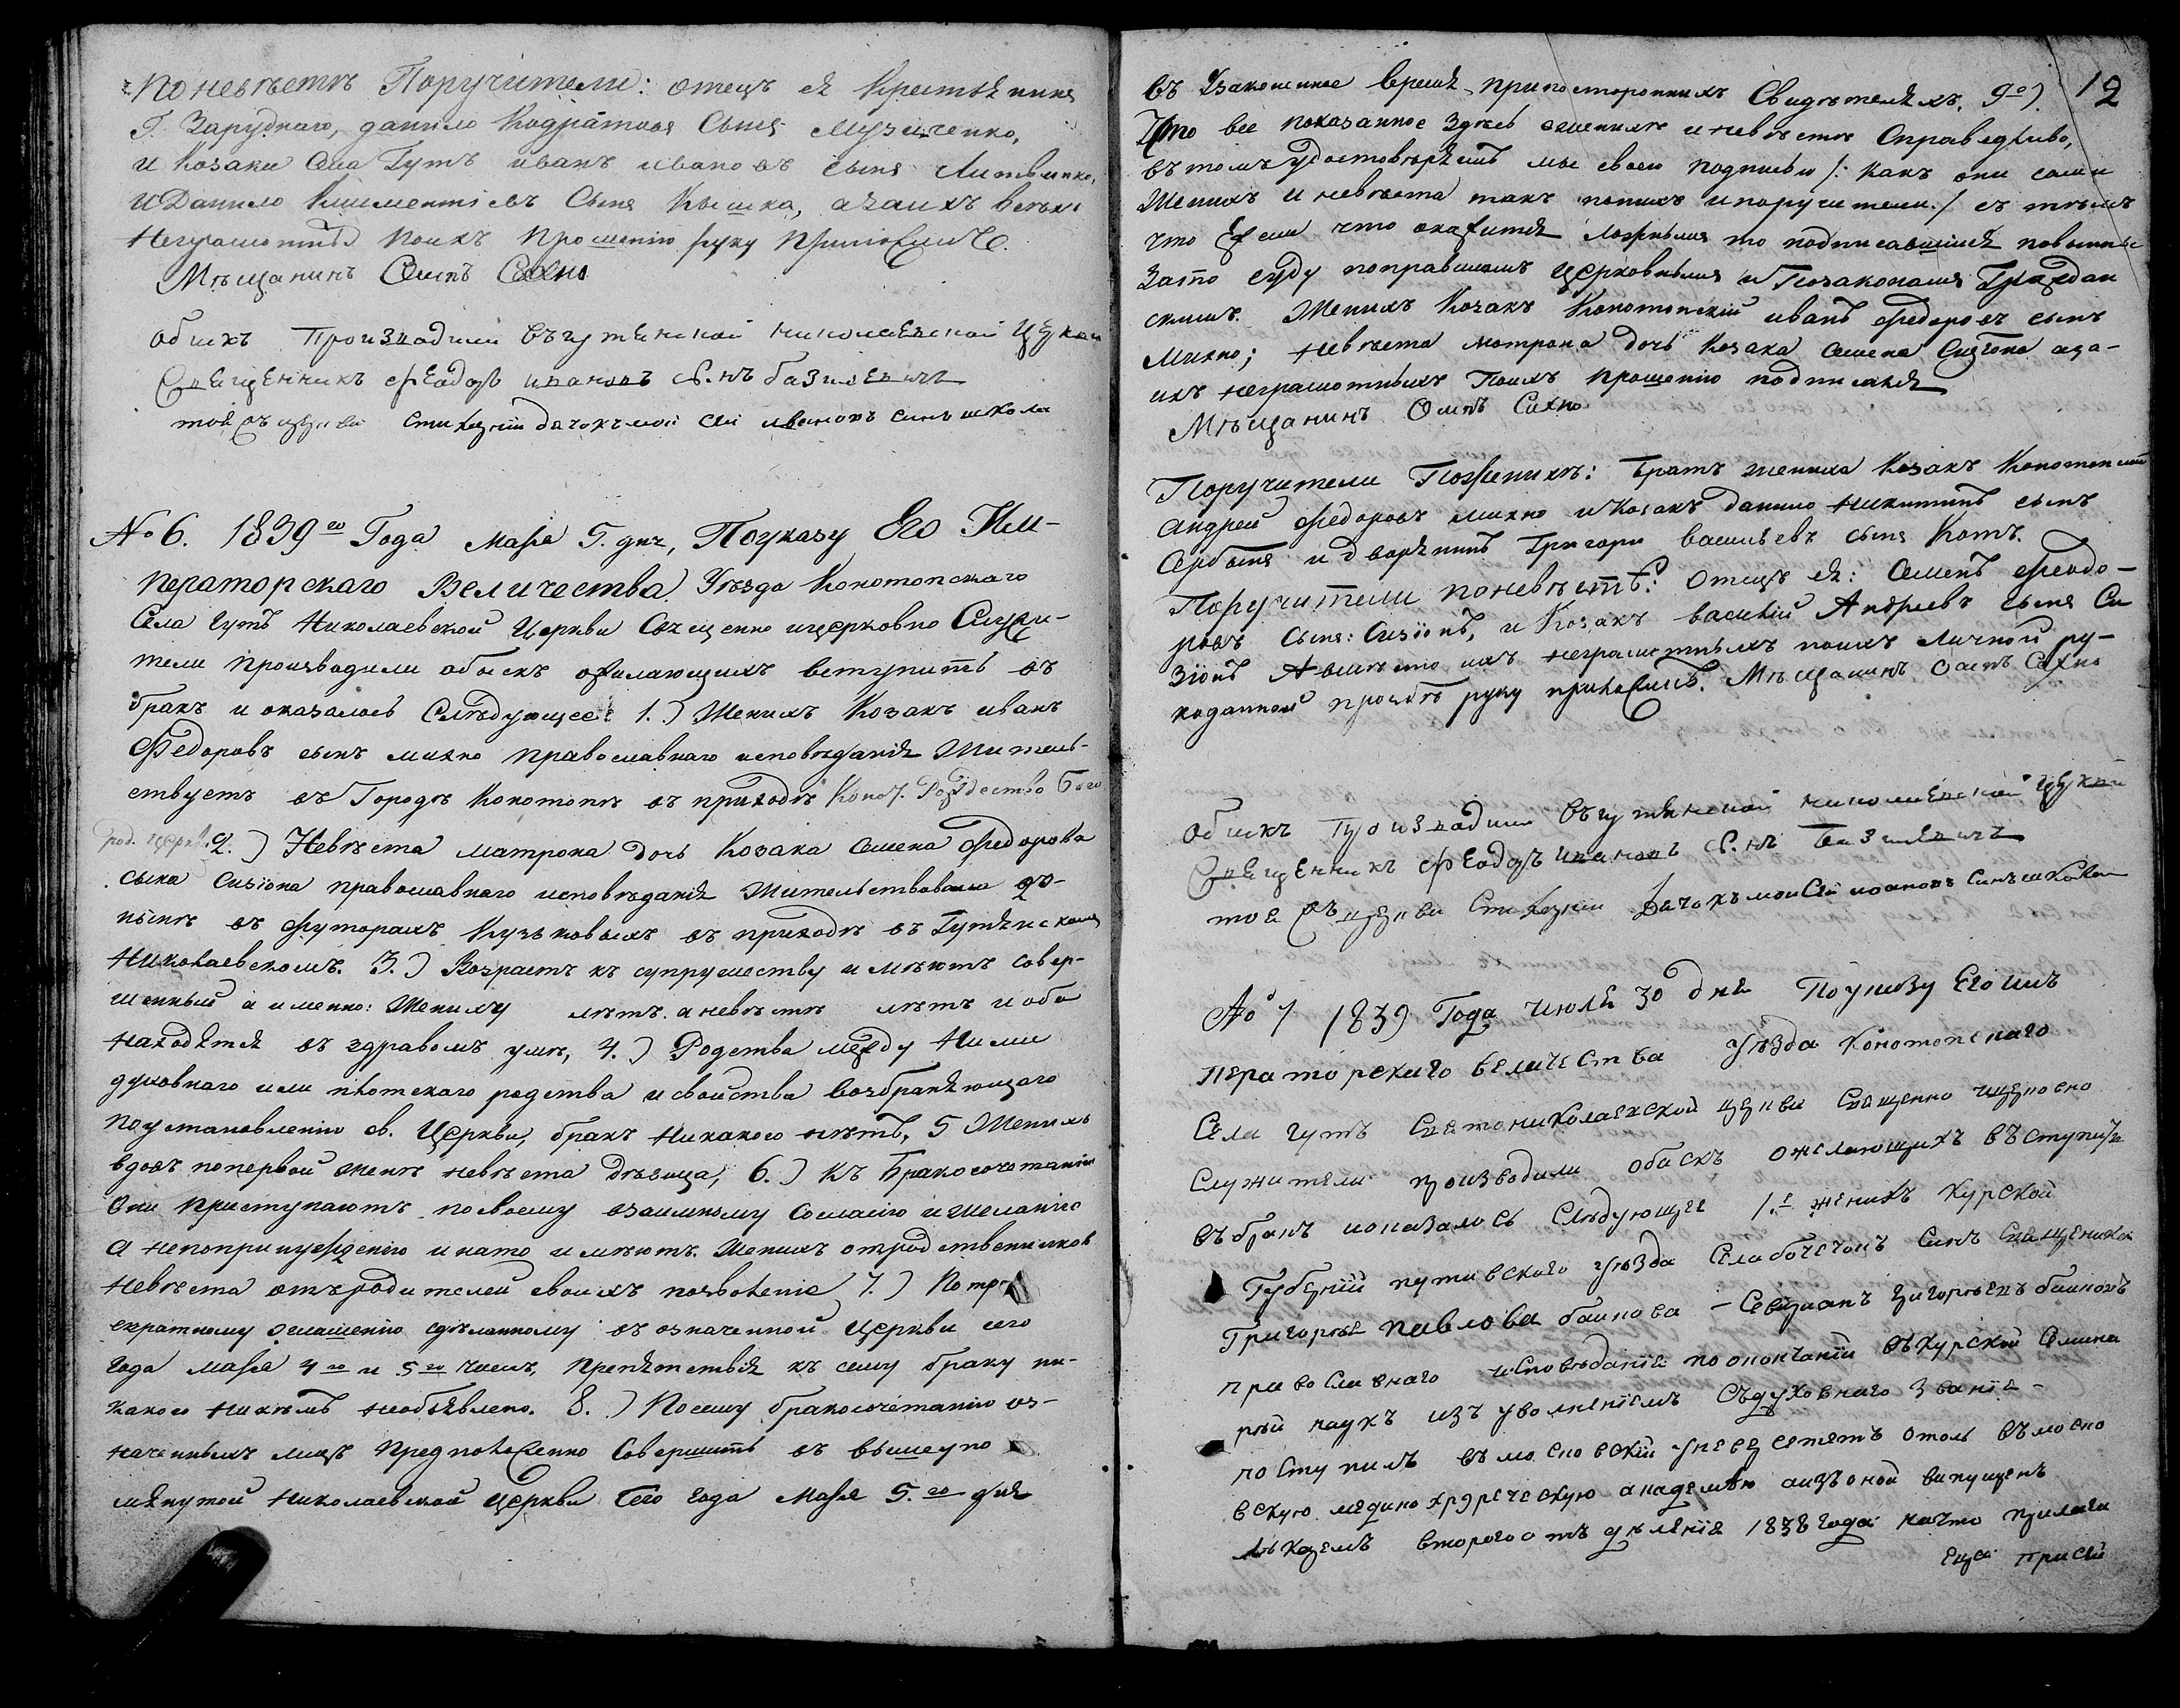 По невѣстѣ Поручители: отецъ ея Крестьянинъ
Г. Заруднаго, данило Кодратовъ Сынъ Музыченко,
и Козаки села Гутъ иванъ ивановъ сынъ Литвинко,
и Данило Климентіевъ Сынъ Кышка, а за ихъ всѣхъ
Неграмотныхъ по ихъ Прошенію руку Приложилъ
Мѣщанинъ Осипъ Сахно
Обискъ Производили въ гутянской николаевской церкви
Священникъ феодоръ ивановъ с.нъ базилевичъ
тоя ж церкви стихарній дячокъ ивановъ синъ
№ 6. 1839го Года Маія 5. дня, По указу Его Им-
ператорскаго Величества Уѣзда Конотопскаго
Села Гутъ Николаевской Церкви Священно и церковно Служи-
тели производили обыскъ о желающихъ вступить въ
бракъ и оказалось Слѣдующее: 1.) Женихъ Козакъ иванъ
Федоровъ сынъ михно православнаго исповѣданія Житель-
ствуетъ въ Городѣ Конотопѣ въ приходѣ Коно. Рождество Бого
род. церкв. 2.) Невѣста матрона дочь Козака Семена Федорова
сына Сизіона православнаго исповѣданія Жительствовала до-
нынѣ въ футорахъ Кузьковыхъ въ приходѣ въ Гутянскомъ
Николаевскомъ. 3.) Возрастъ къ супружеству имѣютъ совер-
шенный а именно: Жениху лѣтъ. а невѣстѣ лѣтъ и оба
находятся въ здравомъ умѣ, 4.) Родства между Ними
духовнаго или плотскаго родства и свойства возбраняющаго
по установленію св. Церкви, бракъ Никакого нѣтъ, 5 Женихъ
вдовъ по первой женѣ невѣста дѣвица, 6.) Къ Бракосочетанію
Они приступаютъ по своему взаимному Согласію и Желанію
а не по принужденію и на то имѣютъ. Женихъ от родственников
Невѣста отъ родителей своихъ позволеніе 7.) По тро
екратному оглашенію сдѣланному въ означенной Церкви сего
Года Маія 4го и 5го числъ, препятствія къ сему браку ни-
какого Никѣмъ необъявлено. 8.) По сему бракосочетанію оз-
наченныхъ лицъ Предположенно Совершить въ вышеупо
мянутой Николаевской Церкви Сего Года Маія 5.го дня
12
въ Узаконенное время при постороннихъ Свидѣтеляхъ. 9е).
Что все показанное здѣсь о женихѣ и невѣстѣ Справедливо,
въ томъ удостовѣряемъ мы своею подписью /: какъ они сами
Женихъ и невѣста такъ по нихъ и поручители./ съ тѣмъ
что Если что окажется ложнымъ то подписавшіися повинны
За то суду по правиламъ Церковнымъ и По законамъ Граждан
скимъ. Женихъ Козакъ Конотопскій иванъ федоровъ сынъ
михно; невѣста матрона дочь Козака семена Сизіона а за-
ихъ неграмотныхъ По ихъ Прошенію подписался
Мѣщанинъ Осипъ Сахно
Поручители По женихѣ: Братъ жениха Козакъ Конотопскій
Андрей федоровъ михно и Козакъ данило Никитинъ сынъ
Сербинъ и дворянинъ Григори васильевъ сынъ Котъ.
Поручители по невѣстѣ: Отецъ ея: Семенъ Феодо-
ровъ Сынъ: Сизіонъ, и Козакъ василій Андреевъ сынъ Си
зіонъ А вмѣсто ихъ неграмотныхъ по ихъ личной ру-
коданной просьбѣ руку приложилъ. Мѣщанинъ Осипъ Сахно
Обискъ Производили въ гутянской николаевской церкви
Священникъ феодоръ ивановъ с.нъ базилевичъ
тоя ж церкви стихарній дячокъ синъ
№ 7 1839 Года июля 30 дня По указу Его им
ператорскаго величества уѣзда Конотопскаго
Села гутъ Святониколаевской церкви Священно и церковно
Служители производили обискъ о желающихъ вступить
въ бракъ и оказалось Слѣдующее 1.е женихъ курской
Губерніи путивскаго уѣзда Села бочечокъ синъ священика
Григорія павлова баинова – Севиріанъ григорьевъ баиновъ
православнаго исповѣданія по окончаніи въ курской Семина
ріи наукъ изъ уволненіемъ съ духовнаго званія –
поступилъ въ московскій университетъ а изъ оной випущенъ
вскую медико хирургическую академѣю
лѣкаремъ второго отъдѣленія 1838 года на что прилага
еца при сем